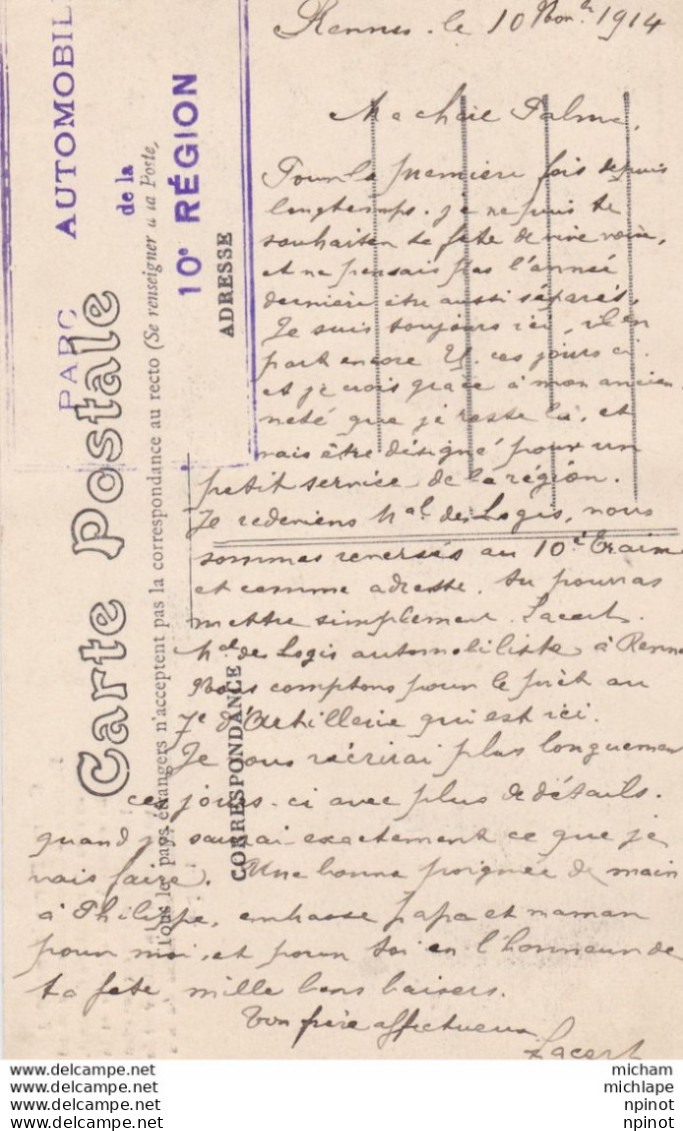 Rennes. le 10 Nov. 1914
Ma chère Palma,
Pour la première fois depuis
longtemps. je ne puis te
souhaiter ta fête de vive voix,
et ne pensais pas l'année
dernière être aussi séparés.
Je suis toujours ici, il en
part encore 25. ces jours ci.
et je crois grâce à mon ancien
neté que je reste là, et
vais être désigné pour un
petit service de la région.
Je redeviens Mal. des Logis, nous
sommes reversés au 10e Train
et comme adresse. tu pourras
mettre simplement. Lacert.
Mal des Logis automobiliste à Renne
Nous comptons pour le prêt au
7e d'Artillerie qui est ici.
Je vous récrirai plus longuement
ces jours-ci avec plus de détails.
quand je saurai exactement ce que je
vais faire. Une bonne poignée de main
à Philippe, embrasse papa et maman
pour moi, et pour toi en l'honneur de
ta fête mille bons baisers.
Ton frère affectueux
Lacert
PARC AUTOMOBIL
de la
10e RÉGION
Carte Postale
Tous les pays étrangers n'acceptent pas la correspondance au recto (Se renseigner à la Poste,
CORRESPONDANCE
ADRESSE
micham
michlape
npinot
npinot
www.delcampe.net
www.delcampe.net
www.delcampe.net
www.delcampe.net